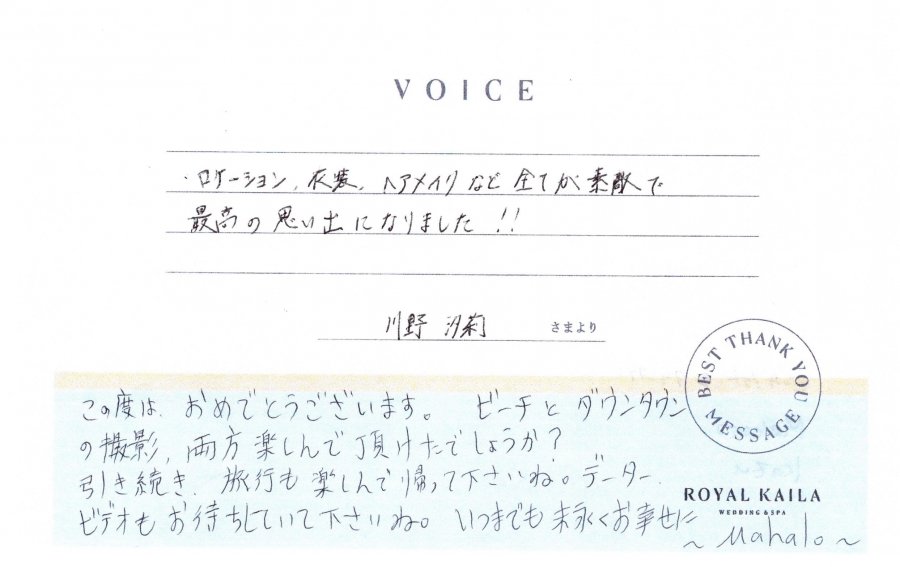 VOICE
・ロケーション、衣装、ヘアメイクなど全てが素敵で
最高の思い出になりました!!
川野 汐莉 さまより
BEST THANK YOU MESSAGE
この度は、おめでとうございます。 ビーチとダウンタウン
の撮影、両方楽しんで頂けたでしょうか?
引き続き、旅行も楽しんで帰って下さいね。データー、
ビデオもお待ちしていて下さいね。いつまでも末永くお幸せに
ROYAL KAILA
WEDDING & SPA
~ Mahalo ~